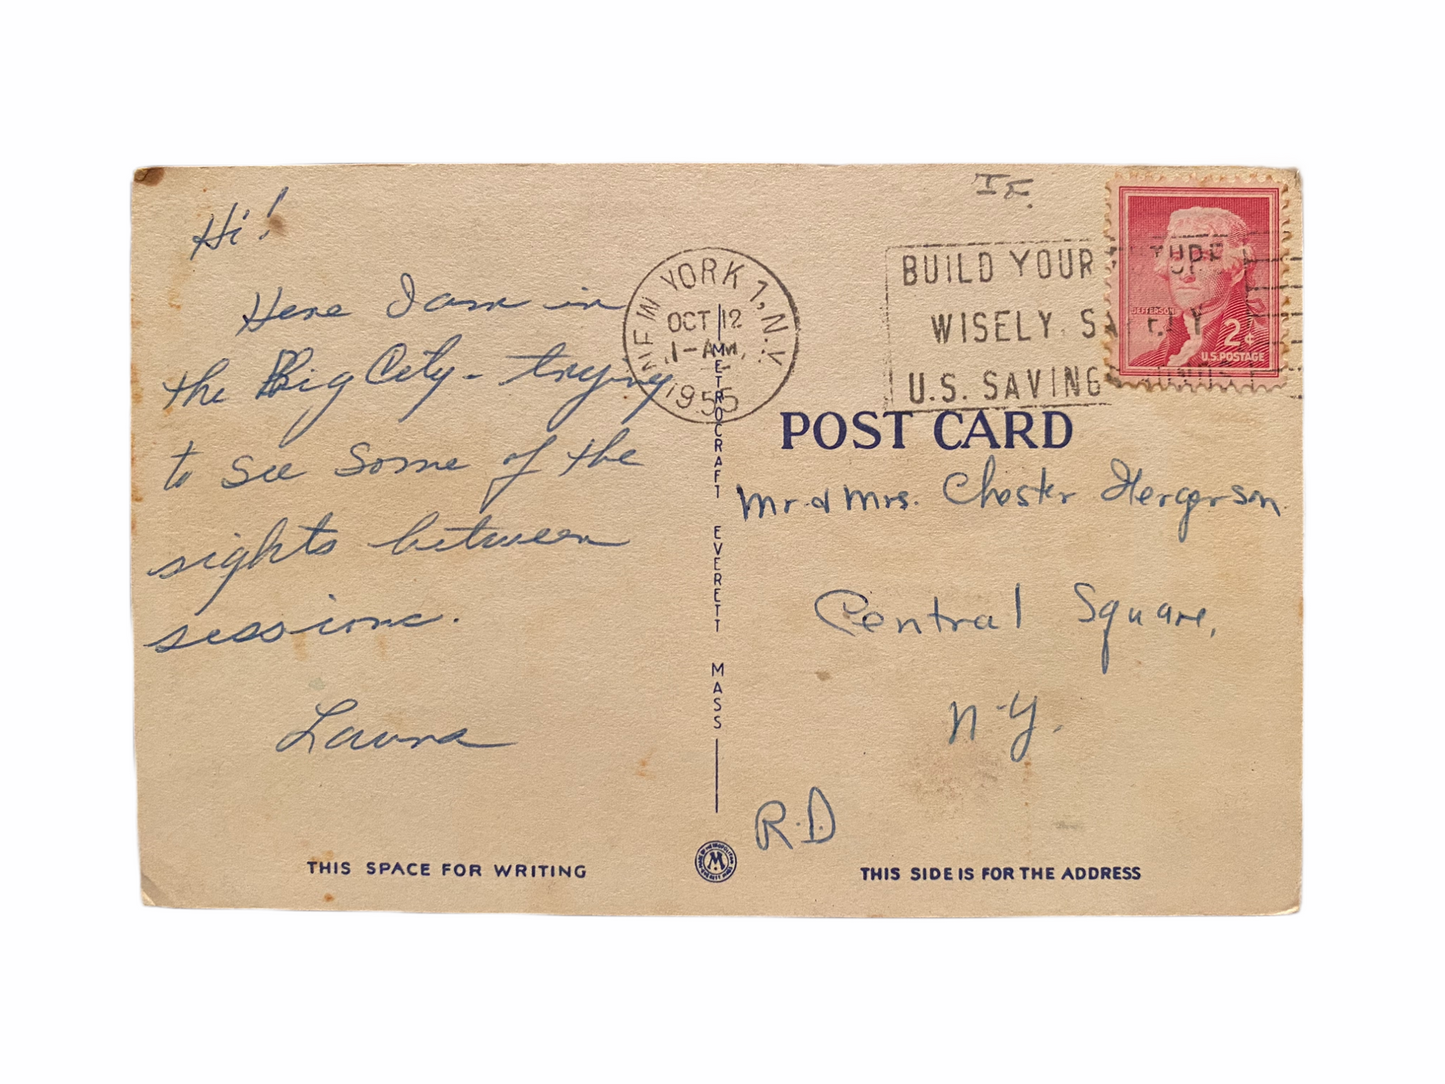 Hi!
Here I am in
the Big City - trying
to see some of the
sights between
sessions.
Laura
THIS SPACE FOR WRITING
NEW YORK 1, N.Y.
OCT 12
1-AM
1955
METROCRAFT EVERETT MASS
M
BUILD YOUR FUTURE
WISELY SAFELY
U.S. SAVINGS BONDS
JEFFERSON
2¢
U.S. POSTAGE
POST CARD
Mr. & Mrs. Chester Hergerson
Central Square,
N.Y.
R.D
THIS SIDE IS FOR THE ADDRESS